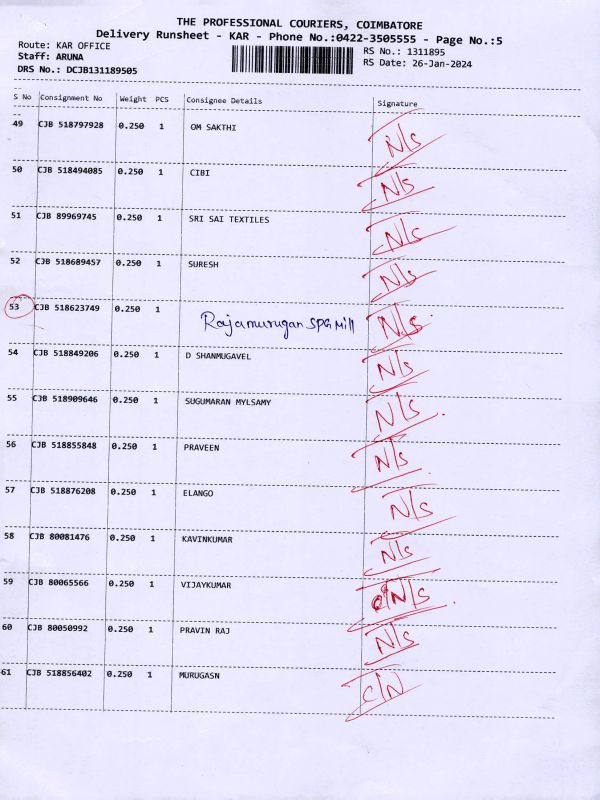 THE PROFESSIONAL COURIERS, COIMBATORE
Delivery Runsheet - KAR - Phone No.:0422-3505555 - Page No.:5
Route: KAR OFFICE RS No.: 1311895
Staff: ARUNA RS Date: 26-Jan-2024
DRS No.: DCJB131189505
S No Consignment No Weight PCS Consignee Details Signature
49 CJB 518797928 0.250 1 OM SAKTHI N/S
50 CJB 518494085 0.250 1 CIBI N/S
51 CJB 89969745 0.250 1 SRI SAI TEXTILES N/S
52 CJB 518689457 0.250 1 SURESH N/S
53 CJB 518623749 0.250 1 Rajamurugan SPG Mill N/S
54 CJB 518849206 0.250 1 D SHANMUGAVEL N/S
55 CJB 518909646 0.250 1 SUGUMARAN MYLSAMY N/S
56 CJB 518855848 0.250 1 PRAVEEN N/S
57 CJB 518876208 0.250 1 ELANGO N/S
58 CJB 80081476 0.250 1 KAVINKUMAR N/S
59 CJB 80065566 0.250 1 VIJAYKUMAR N/S
60 CJB 80050992 0.250 1 PRAVIN RAJ N/S
61 CJB 518856402 0.250 1 MURUGASN C/N